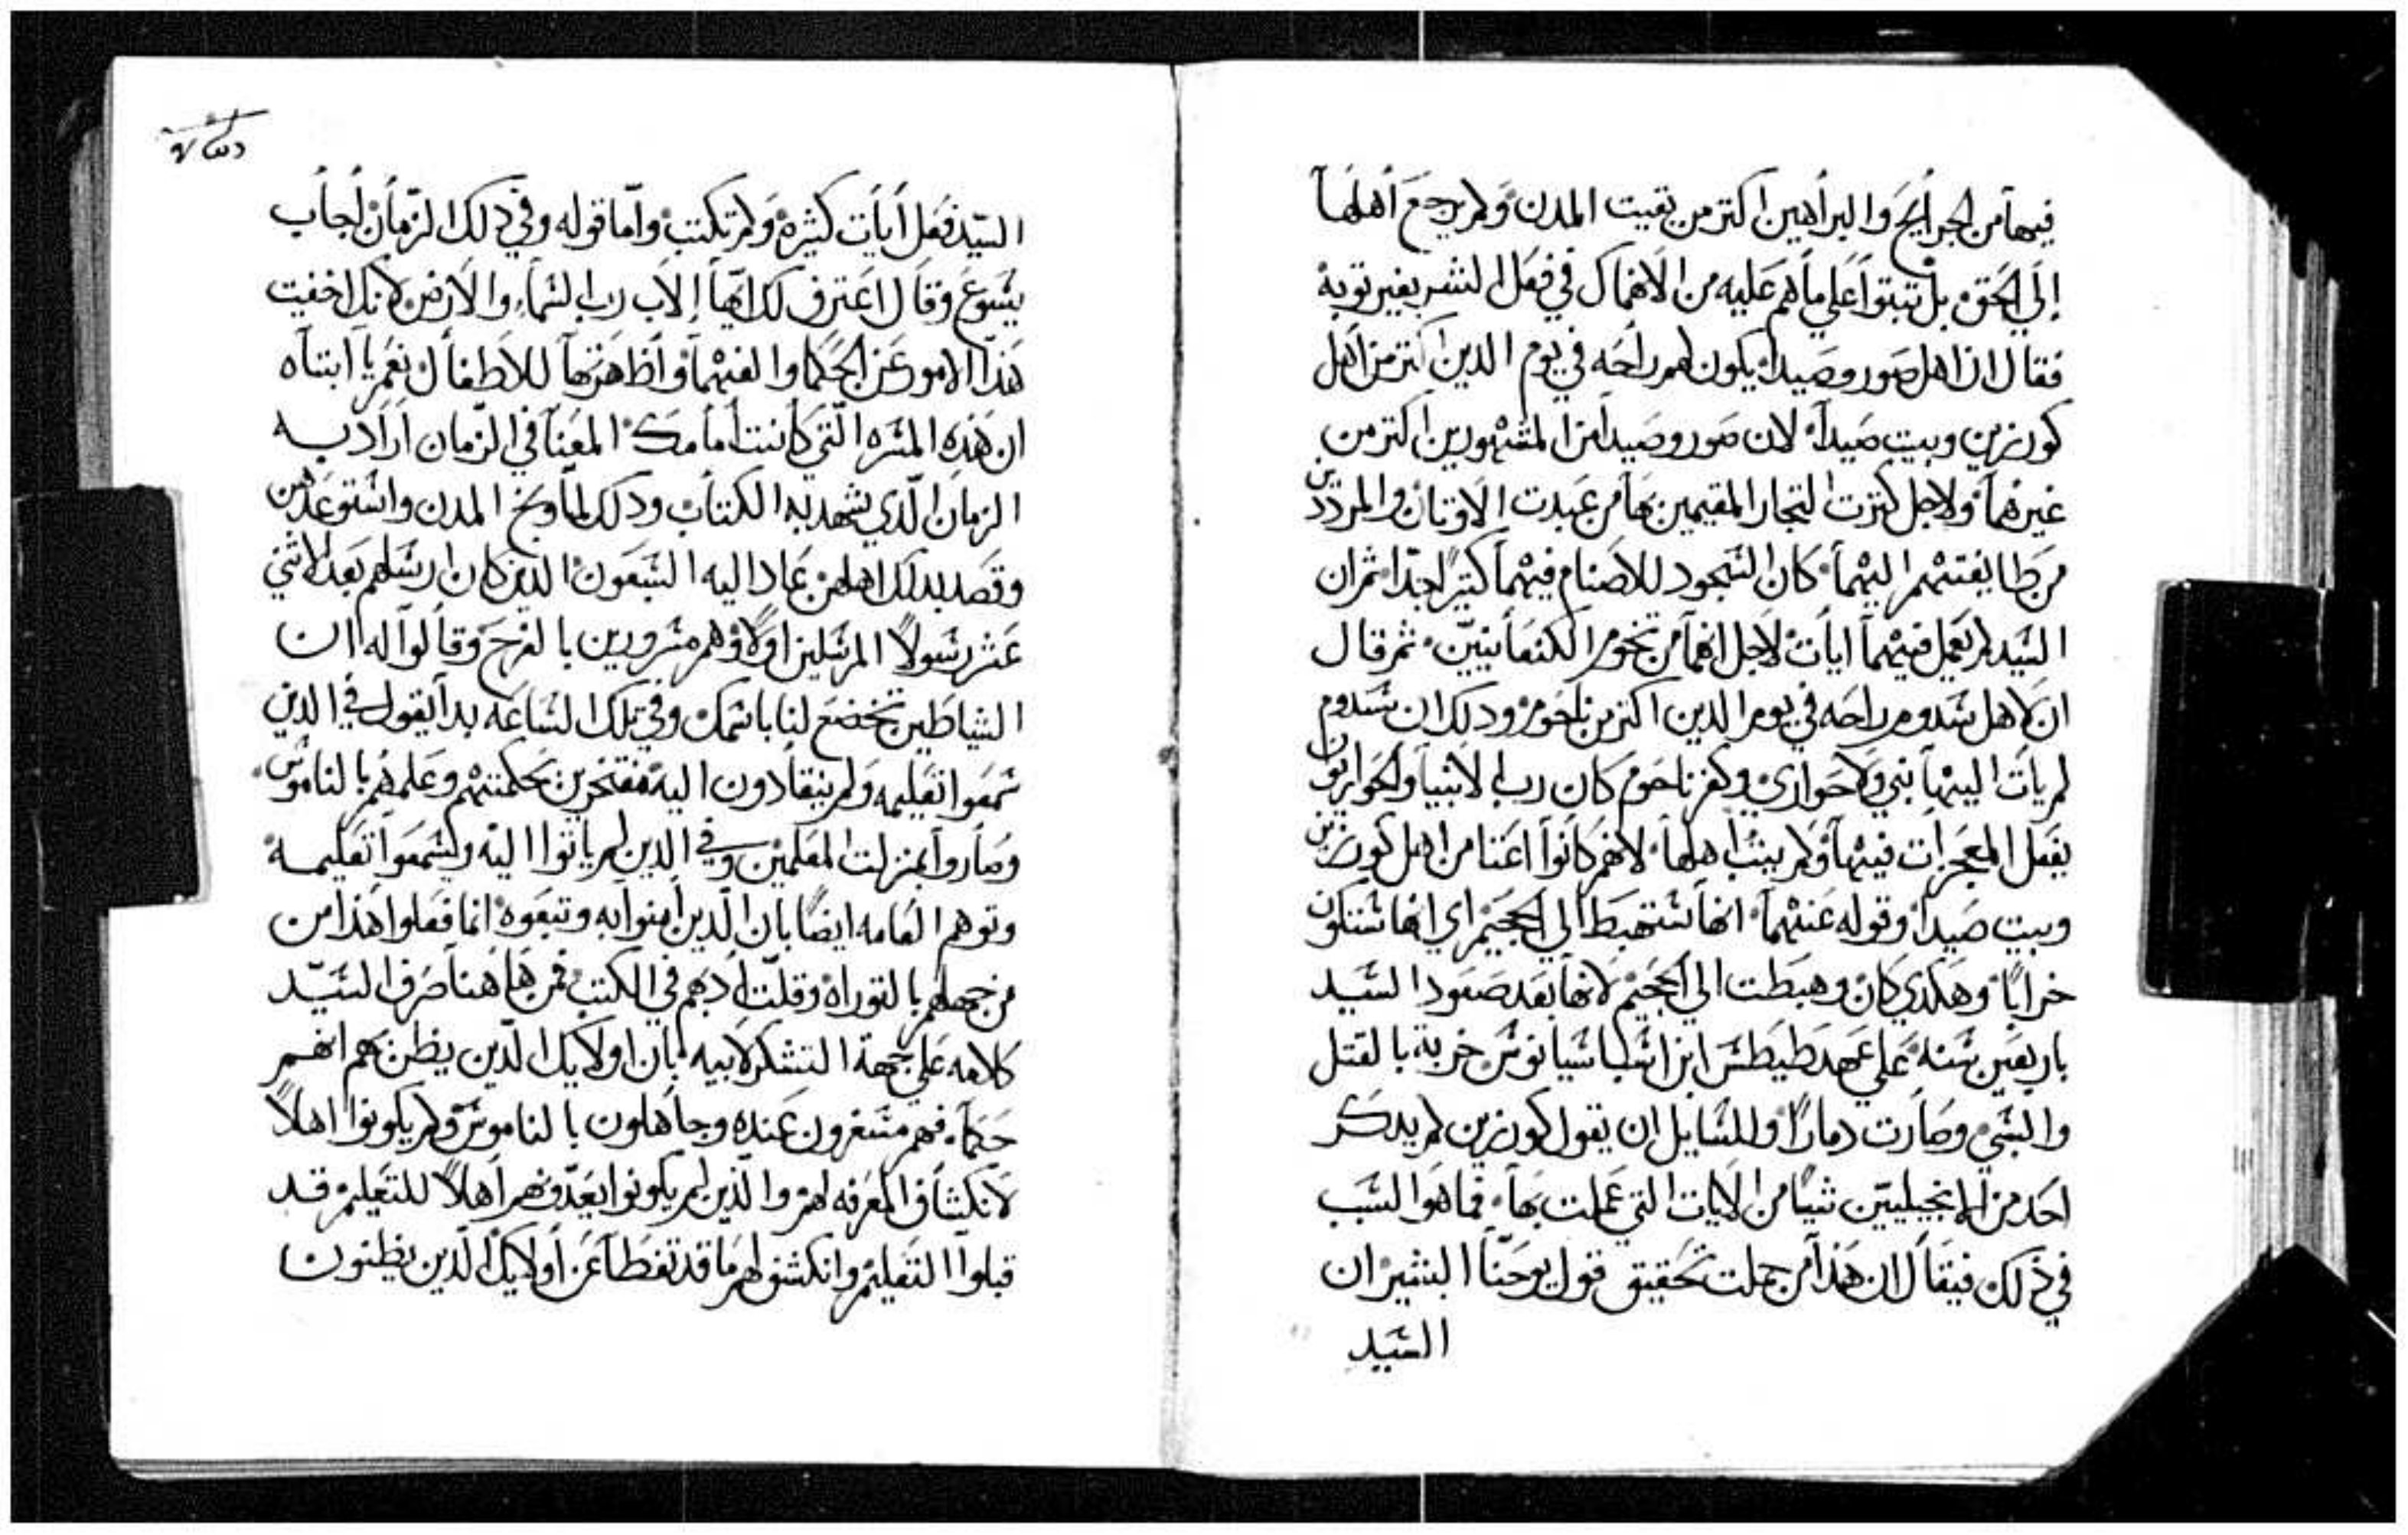 فيها من الجرايح والبراهين اكتر من بقيت المدن ولم يرجع اهلها
إلي الحق بل تبتوا علي ما هم عليه من الانهماك في فعل الشر بغير توبة
فقال ان اهل صور وصيدا يكون لهم راحه في يوم الدين اكتر من اهل
كورنزين وبيت صيدا لان صور وصيدا من المشهورين اكتر من
غيرهما ولاجل كترت التجار المقيمين بها من عبدت الاوتان والمرددين
من طايفتهم اليهما كان السجود للاصنام فيهما كتيرًا جدًا ثم ان
السيد لم يعمل فيهما ايات لاجل انهما من تخوم الكنعانيين ثم قال
ان لاهل سدوم راحه في يوم الدين اكتر من ناحوم ودلك ان سدوم
لم يات اليها نبي ولا حواري وكفرناحوم كان رب الانبيا والحواريون
يفعل المعجزات فيها ولم يتب اهلها لانهم كانوا اعتا من اهل كورنزين
وبيت صيدا وقوله عنهما انها ستهبط الي الجحيم اي انها ستكون
خرابًا وهكدي كان وهبطت الي الجحيم لانها بعد صعود السيد
باربعين سنه علي عهد طيطش ابن اشباشيانوش خربة بالقتل
والسبي وصارت دمارًا وللسايل ان يقول كورنزين لم يدكر
احد من الانجيليين شيًا من الايات التي عملت بها فما هو السبب
في ذلك فيقال ان هذا من جملت تحقيق قول يوحنا البشير ان
السيد
السيد فعل أيات كثيره ولم تكتب واما قوله وفي ذلك الزمان أجاب
يسوع وقال اعترف لك ايها الاب رب السماء والارض لانك اخفيت
هذا الامور عن الحكما والفهما واظهرتها للاطفال نعم يا ابتاه
ان هذه المسره التي كانت أمامك المعنا في الزمان اراد به
الزمان الذي يشهد به الكتاب ودلك لما وبخ المدن واستوعدهن
وقصد بدلك اهلهن عاد اليه السبعون الذين كان ارسلهم بعد الاثني
عشر رسولًا المرسلين اولًا وهم مسرورين بالفرح وقالوا له ان
الشياطين تخضع لنا باسمك وفي تلك الساعه بدا يقول في الدين
سمعوا تعليمه ولم ينقادون اليه مفتخرين بحكمتهم وعلمهم بالناموس
وصاروا بمنزلت المعلمين وفي الدين لم ياتوا اليه وليسمعوا تعليمه
وتوهم العامه ايضًا بان الذين امنوا به وتبعوه انما فعلوا هذا من
من جهلهم بالتوراه وقلت أدبهم في الكتب فمن هاهنا صرف السيد
كلامه علي جهة التشكر لابيه بان اولايك الذين يظن بهم انهم
حكما فهم مستغرون عنده وجاهلون بالناموس ولم يكونوا اهلًا
لانكشاف المعرفه لهم والذين لم يكونوا يعدونهم أهلًا للتعليم قد
قبلوا التعليم وانكشف لهم ما قد تغطا عن أولايك الدين يظنون